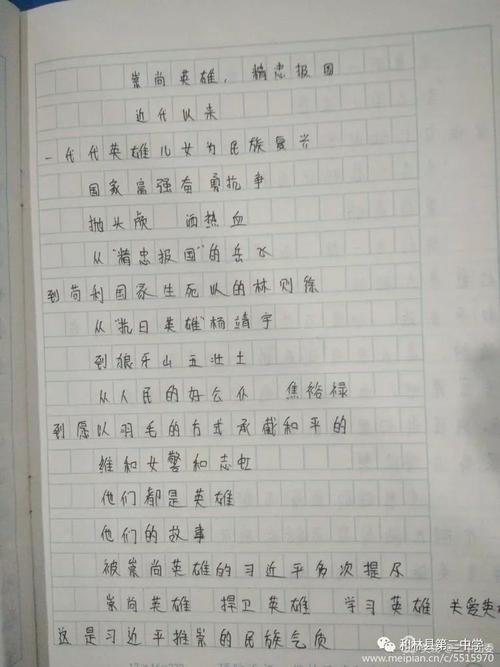 崇尚英雄，精忠报国
近代以来
一代代英雄儿女为民族复兴
国家富强奋勇抗争
抛头颅 洒热血
从"精忠报国"的岳飞
到苟利国家生死以的林则徐
从"抗日英雄"杨靖宇
到狼牙山五壮士
从人民的好公仆 焦裕禄
到愿以羽毛的方式承截和平的
维和女警和志虹
他们都是英雄
他们的故事
被崇尚英雄的习近平多次提及
崇尚英雄 捍卫英雄 学习英雄 关爱英
这是习近平推崇的民族气质
和林县第二中学
meipian.cn/c/5515970